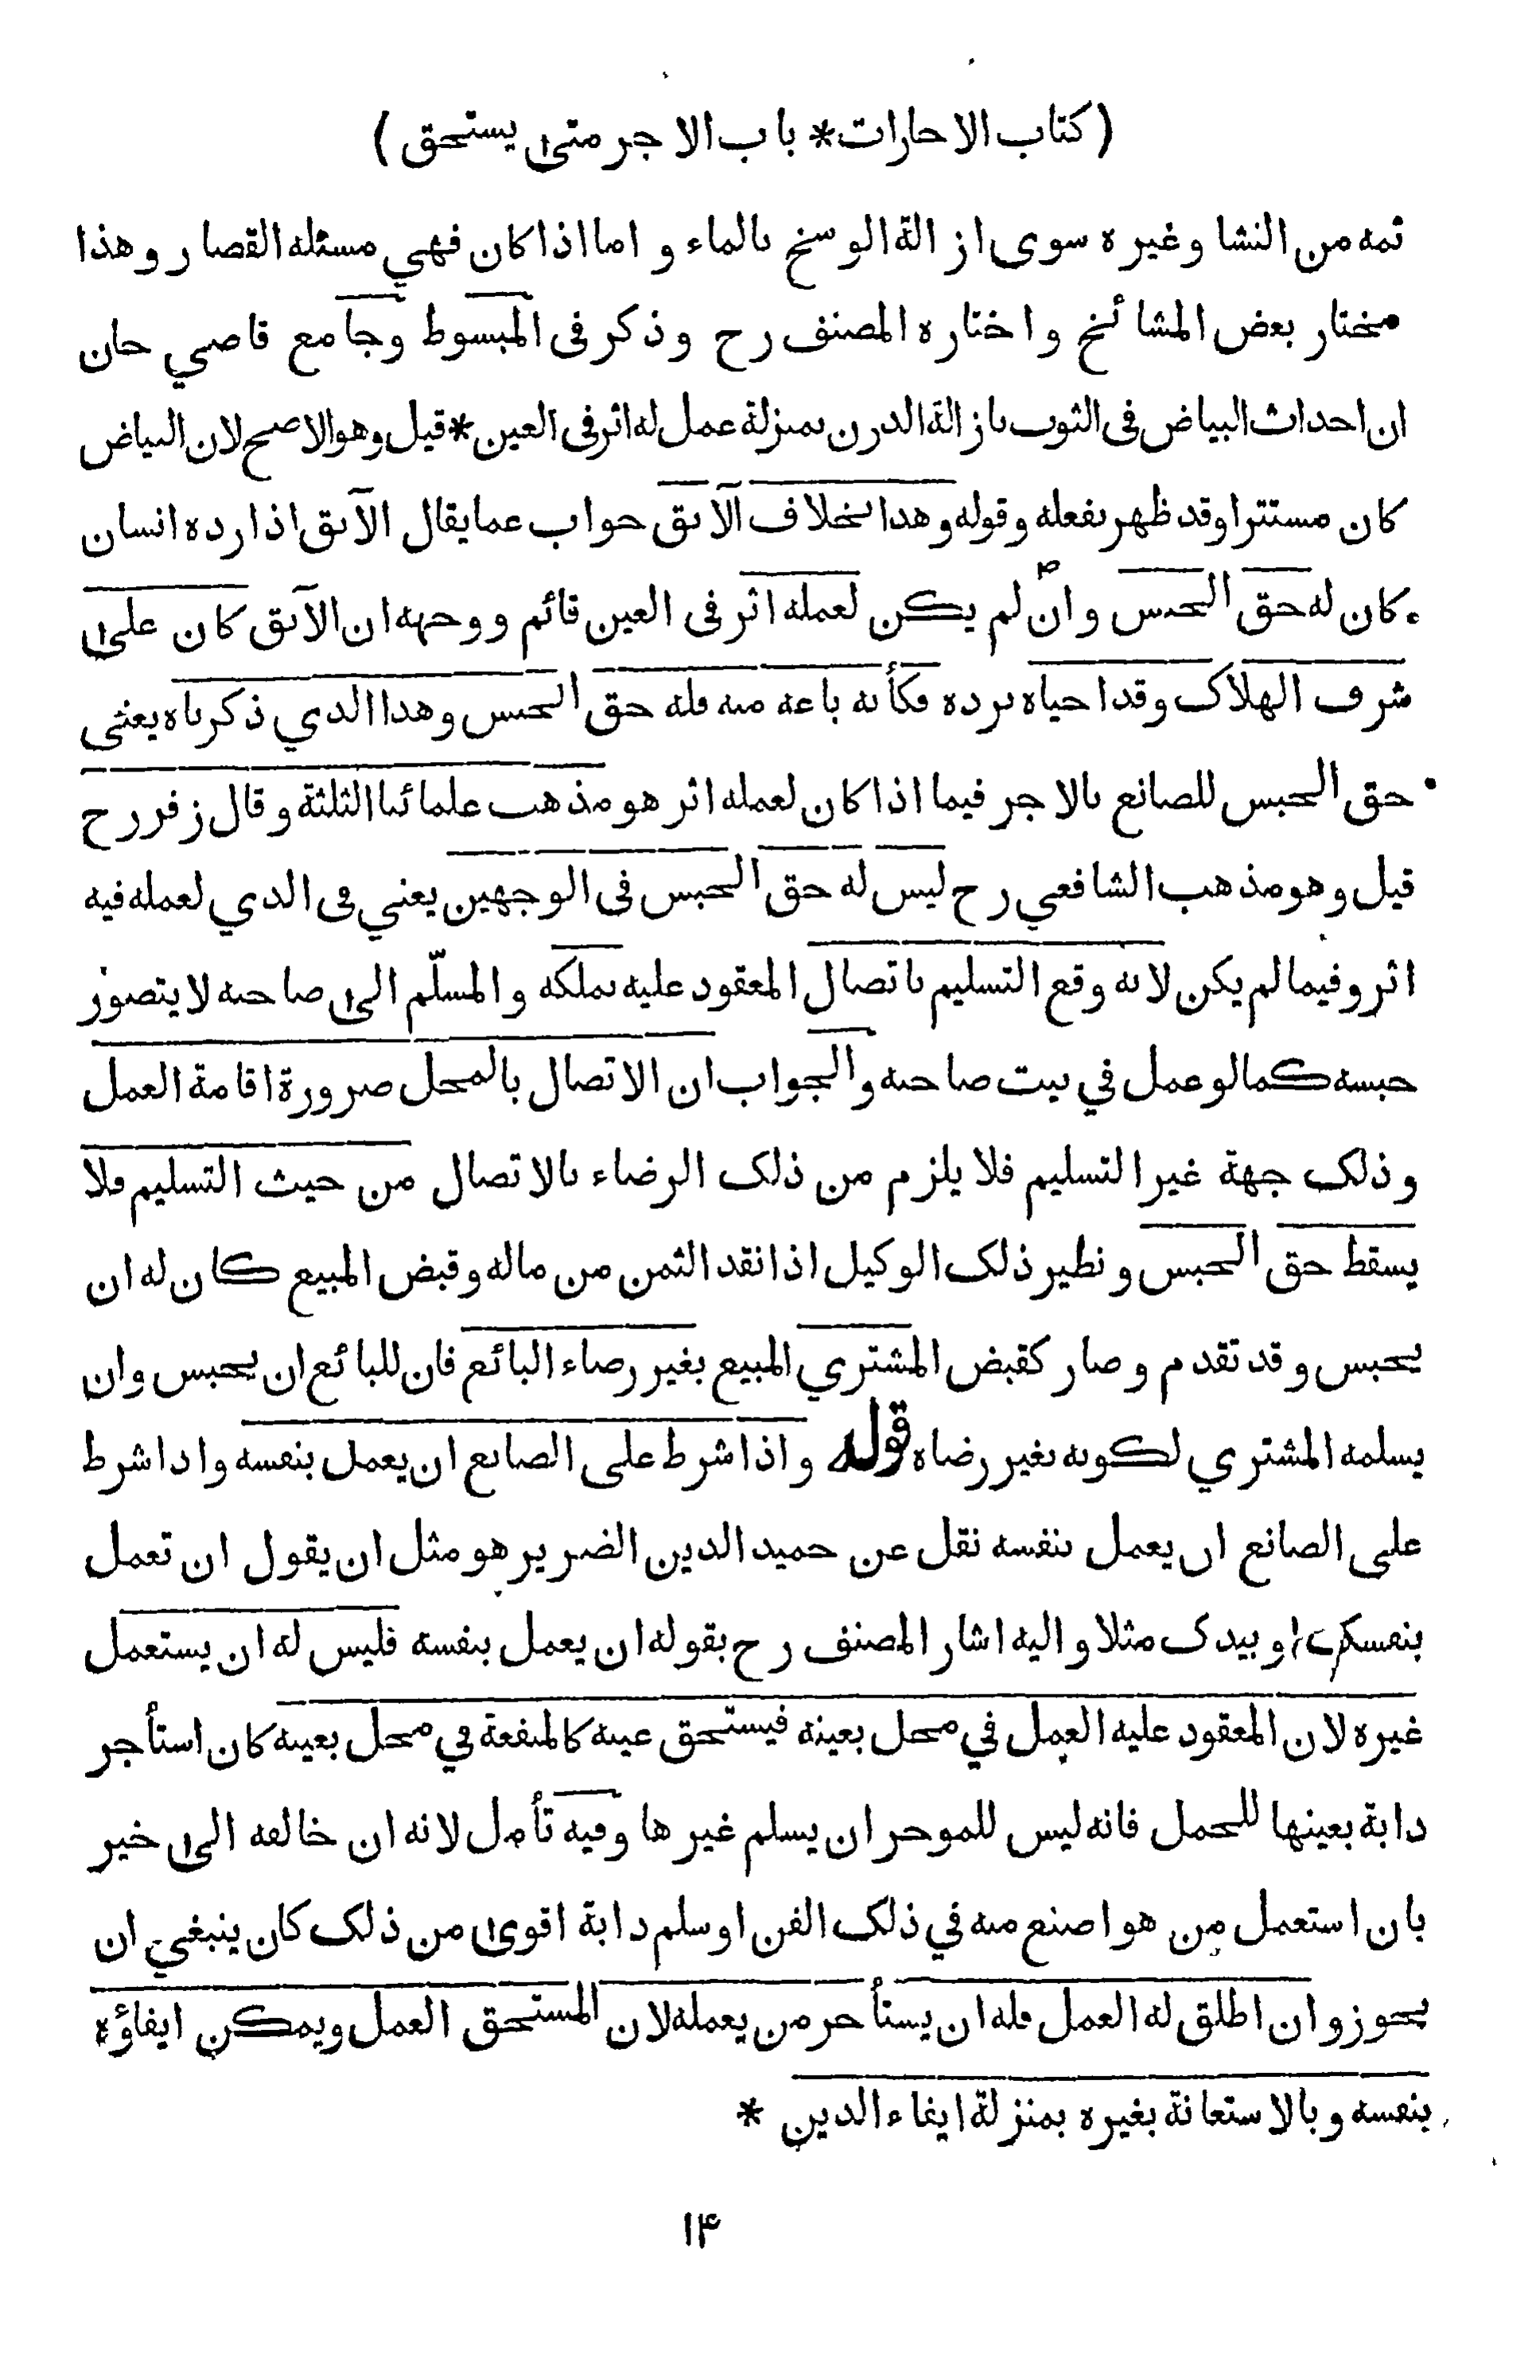 ( كتاب الاجارات * باب الاجر متى يستحق )
ثمه من النشا وغيره سوى ازالة الوسخ بالماء و اما اذا كان فهي مسئله القصار وهذا
مختار بعض المشائخ و اختاره المصنف رح وذكر في المبسوط وجامع قاضي خان
ان احداث البياض في الثوب بازالة الدرن بمنزلة عمل له اثر في العين * قيل وهو الاصح لان البياض
كان مستترا وقد ظهر بفعله وقوله وهذا بخلاف الآبق جواب عما يقال الآبق اذا رده انسان
كان له حق الحبس وان لم يكن لعمله اثر في العين قائم ووجهه ان الآبق كان على
شرف الهلاك وقد احياه برده فكأنه باعه منه فله حق الحبس وهذا الذي ذكرناه يعني
حق الحبس للصانع بالاجر فيما اذا كان لعمله اثر هو مذهب علمائنا الثلثة وقال زفر رح
قيل وهو مذهب الشافعي رح ليس له حق الحبس في الوجهين يعني في الذي لعمله فيه
اثر وفيما لم يكن لانه وقع التسليم باتصال المعقود عليه بملكه والمسلّم الى صاحبه لا يتصور
حبسه كما لو عمل في بيت صاحبه والجواب ان الاتصال بالمحل ضرورة اقامة العمل
وذلك جهة غير التسليم فلا يلزم من ذلك الرضاء بالاتصال من حيث التسليم فلا
يسقط حق الحبس ونظير ذلك الوكيل اذا نقد الثمن من ماله وقبض المبيع كان له ان
يحبس وقد تقدم وصار كقبض المشتري المبيع بغير رضاء البائع فان للبائع ان يحبس وان
يسلمه المشتري لكونه بغير رضاه قوله واذا شرط على الصانع ان يعمل بنفسه واذا شرط
على الصانع ان يعمل بنفسه نقل عن حميد الدين الضرير هو مثل ان يقول ان تعمل
بنفسك او بيدك مثلا واليه اشار المصنف رح بقوله ان يعمل بنفسه فليس له ان يستعمل
غيره لان المعقود عليه العمل في محل بعينه فيستحق عينه كالمنفعة في محل بعينه كان استأجر
دابة بعينها للحمل فانه ليس للموجر ان يسلم غيرها وفيه تأمل لانه ان خالفه الى خير
بان استعمل من هو اصنع منه في ذلك الفن او سلم دابة اقوى من ذلك كان ينبغي ان
يجوز وان اطلق له العمل فله ان يستأجر من يعمله لان المستحق العمل ويمكن ايفاؤه
بنفسه وبالاستعانة بغيره بمنزلة ايفاء الدين *
١۴